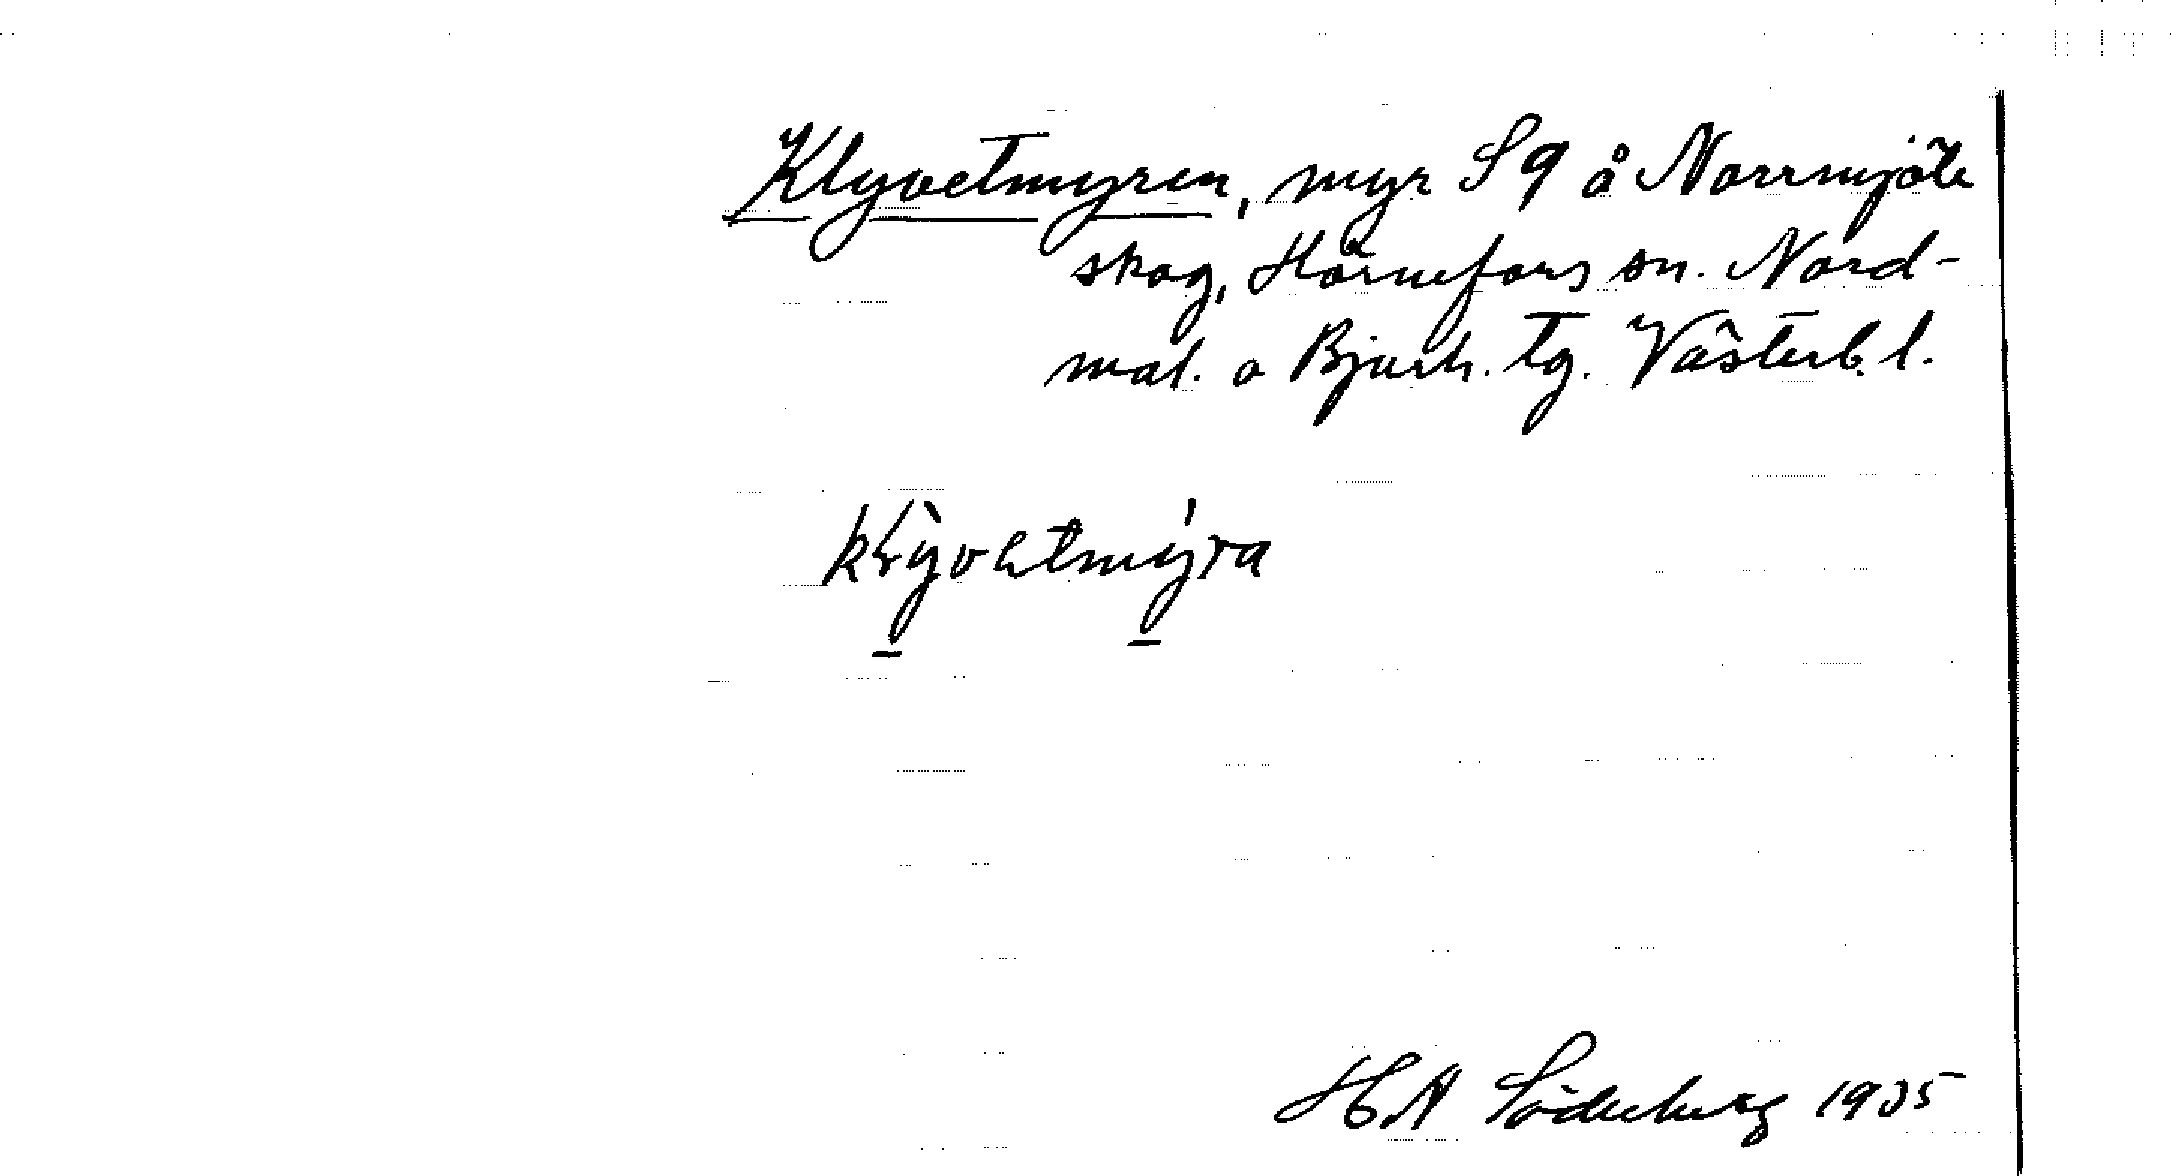 Klyvetmyren, myr S 9 å Norrmjöle
skog, Hörnefors sn. Nord-
mal. o Bjurh. tg. Västerb. l.
klỳvetmýra
H A Söderberg 1935